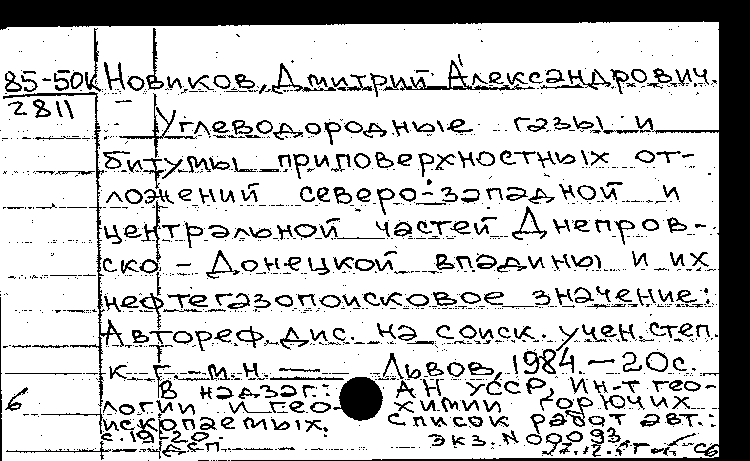 85-50к Новиков, Дмитрий Александрович.
2811
Углеводородные газы и
битумы приповерхностных от-
ложений северо-западной и
центральной частей Днепров-
ско-Донецкой впадины и их
нефтегазопоисковое значение:
Автореф. дис. на соиск. учен. степ.
к. г.-м.н. — Львов, 1984. - 20 с.
В надзаг.: АН УССР, Ин-т гео-
6 логии и гео- химии горючих
ископаемых. Список работ авт.:
с. 19-20. Экз. N 00093
ДСП